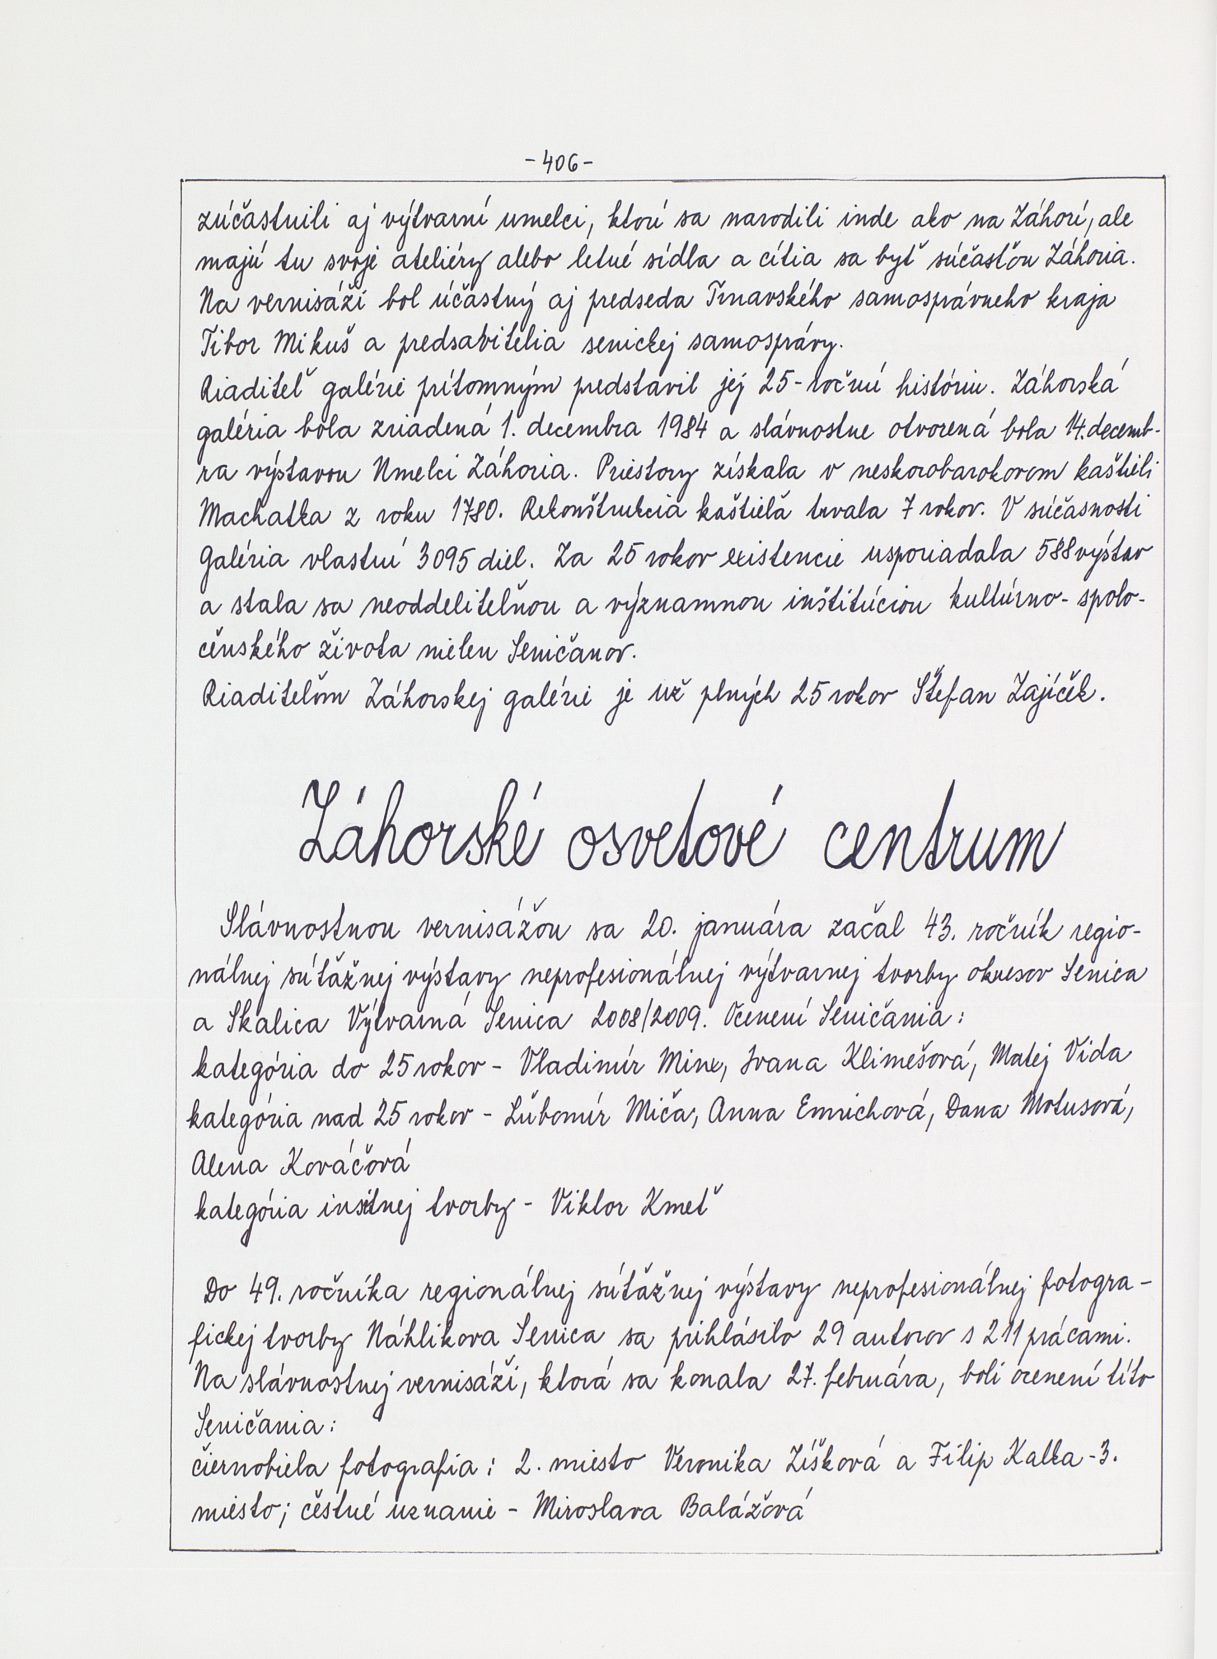 -406-
zúčastnili aj výtvarní umelci, ktorí sa narodili inde ako na Záhorí, ale
majú tu svoje ateliéry alebo letné sídla a cítia sa byť súčasťou Záhoria.
Na vernisáži bol účastný aj predseda Trnavského samosprávneho kraja
Tibor Mikuš a predsavitelia senickej samosprávy.
Riaditeľ galérie prítomným predstavil jej 25-ročnú históriu. Záhorská
galéria bola zriadená 1. decembra 1984 a slávnostne otvorená bola 14. decemb-
ra výstavou Umelci Záhoria. Priestory získala v neskorobarokovom kaštieli
Machatka z roku 1780. Rekonštrukcia kaštieľa trvala 7 rokov. V súčasnosti
Galéria vlastní 3095 diel. Za 25 rokov existencie usporiadala 588 výstav
a stala sa neoddeliteľnou a významnou inštitúciou kultúrno-spolo-
čenského života nielen Seničanov.
Riaditeľom Záhorskej galérie je už plných 25 rokov Štefan Zajíček.
Záhorské osvetové centrum
Slávnostnou vernisážou sa 20. januára začal 43. ročník regio-
nálnej súťažnej výstavy neprofesionálnej výtvarnej tvorby okresov Senica
a Skalica Výtvarná Senica 2008/2009. Ocenení Seničania:
kategória do 25 rokov - Vladimír Minx, Ivana Klimešová, Matej Vida
kategória nad 25 rokov - Ľubomír Miča, Anna Emrichová, Dana Motusová,
Alena Kováčová
kategória insitnej tvorby - Viktor Kmeť
Do 49. ročníka regionálnej súťažnej výstavy neprofesionálnej fotogra-
fickej tvorby Náhlikova Senica sa prihlásilo 29 autorov s 211 prácami.
Na slávnostnej vernisáži, ktorá sa konala 27. februára, boli ocenení títo
Seničania:
čiernobiela fotografia: 2. miesto Veronika Zíšková a Filip Kalka -3.
miesto; čestné uznanie - Miroslava Balážová